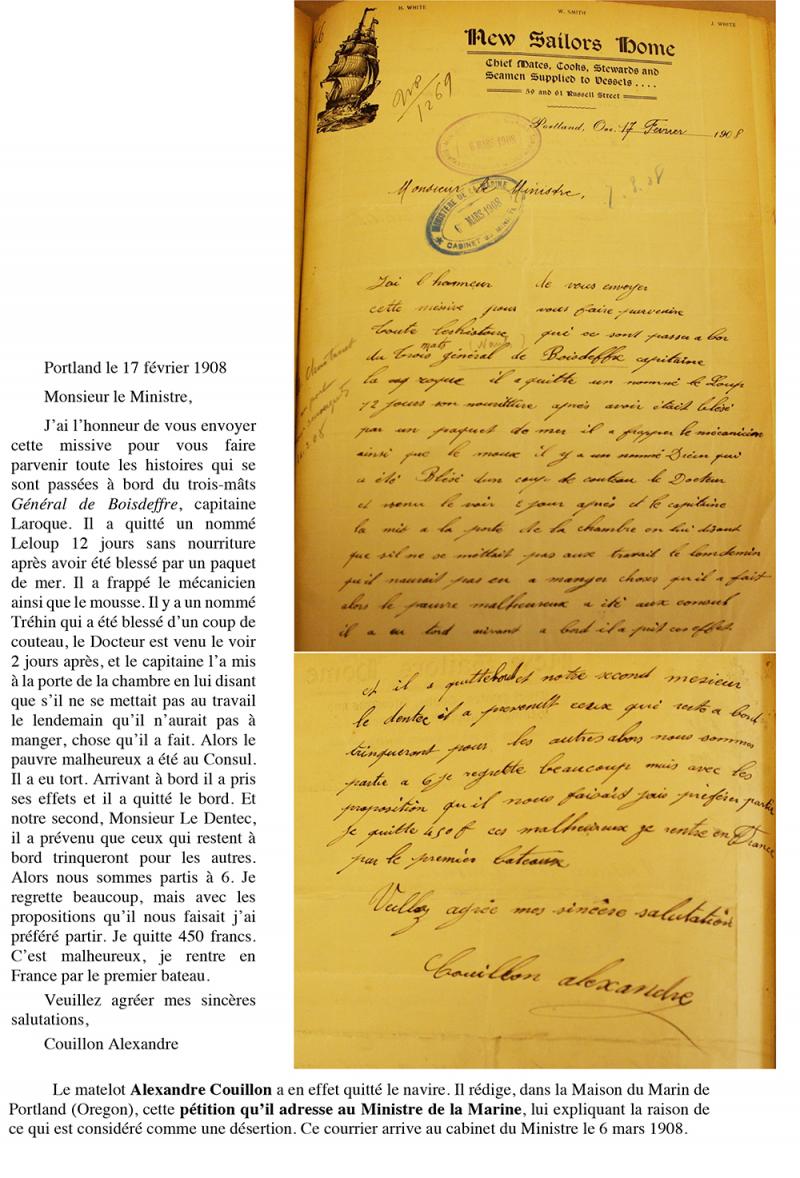 Portland le 17 février 1908
Monsieur le Ministre,
J'ai l'honneur de vous envoyer
cette missive pour vous faire
parvenir toute les histoires qui se
sont passées à bord du trois-mâts
Général de Boisdeffre, capitaine
Laroque. Il a quitté un nommé
Leloup 12 jours sans nourriture
après avoir été blessé par un paquet
de mer. Il a frappé le mécanicien
ainsi que le mousse. Il y a un nommé
Tréhin qui a été blessé d'un coup de
couteau, le Docteur est venu le voir
2 jours après, et le capitaine l'a mis
à la porte de la chambre en lui disant
que s'il ne se mettait pas au travail
le lendemain qu'il n'aurait pas à
manger, chose qu'il a fait. Alors le
pauvre malheureux a été au Consul.
Il a eu tort. Arrivant à bord il a pris
ses effets et il a quitté le bord. Et
notre second, Monsieur Le Dentec,
il a prévenu que ceux qui restent à
bord trinqueront pour les autres.
Alors nous sommes partis à 6. Je
regrette beaucoup, mais avec les
propositions qu'il nous faisait j'ai
préféré partir. Je quitte 450 francs.
C'est malheureux, je rentre en
France par le premier bateau.
Veuillez agréer mes sincères
salutations,
Couillon Alexandre
H. WHITE W. SMITH J. WHITE
New Sailors Home
Chief Mates, Cooks, Stewards and
Seamen Supplied to Vessels ....
59 and 61 Russell Street
1269
Portland, Ore. 17 Fevrier 1908
6 MARS 1908
Monsieur le Ministre,
7.3.08
MINISTÈRE DE LA MARINE
6 MARS 1908
CABINET DU MINISTRE
Jai l honneur de vous envoyer
cette missive pour vous faire parvenir
toute leshistoire qui ce sont passer a bor
du trois mats général de Boisdeffre capitaine
la roque il a quitte un nommé le Loup
12 jours son nourritture après avoir était blésé
par un paquet de mer il a frapper le mécanicien
ainsi que le mouse il y a un nommé Dréen qui
a été Blésé d'un coup de couteau le Docteur
et venu le voir 2 jour après et le capitaine
la mis a la porte de la chambre en lui disant
que sil ne se mettait pas aux travail le lendemin
qu'il naurait pas en a manger choses qu'il a fait
alors le pauvre malheureux a été aux consul
il a eu tord arivant a bord il a prit ces effet
et il a quittebord et notre second mesieur
le dentec il a prevenult ceux qui reste a bord
trinqueront pour les autres alors nous sommes
partie a 6 je regrette beaucoup mais avec les
proposition qu'il nous faisait jais préférer partir
Je quitte 450 f ces malheureux je rentre en France
par le premier bateaux
Veillez agrée mes sincère salutation
Couillon alexandre
Le matelot Alexandre Couillon a en effet quitté le navire. Il rédige, dans la Maison du Marin de
Portland (Oregon), cette pétition qu'il adresse au Ministre de la Marine, lui expliquant la raison de
ce qui est considéré comme une désertion. Ce courrier arrive au cabinet du Ministre le 6 mars 1908.